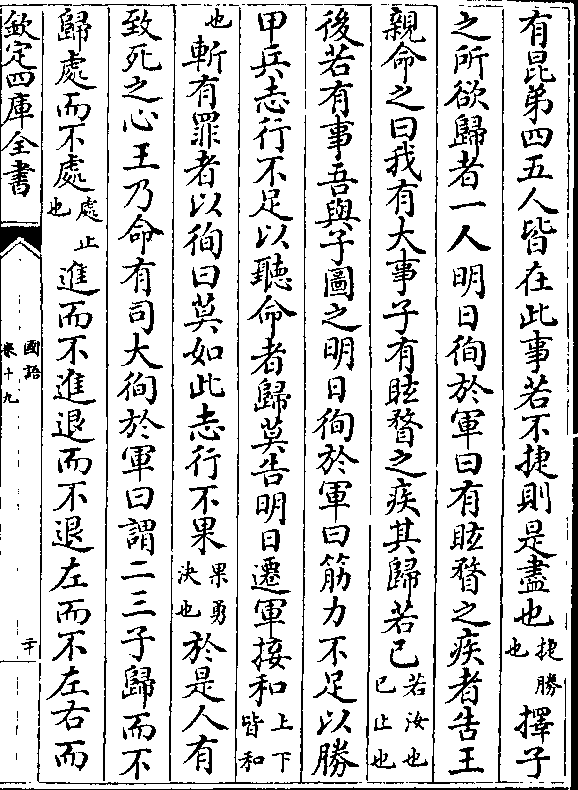 有昆弟四五人皆在此事若不捷則是盡也捷勝也擇子
之所欲歸者一人明日徇於軍曰有眩瞀之疾者告王
親命之曰我有大事子有眩瞀之疾其歸若已若汝也已止也
後若有事吾與子圖之明日徇於軍曰筋力不足以勝
甲兵志行不足以聽命者歸莫告明日遷軍接和上下皆和
也斬有罪者以徇曰莫如此志行不果果勇決也於是人有
致死之心王乃命有司大徇於軍曰謂二三子歸而不
歸處而不處處止也進而不進退而不退左而不左右而
欽定四庫全書
國語
卷十九
二十